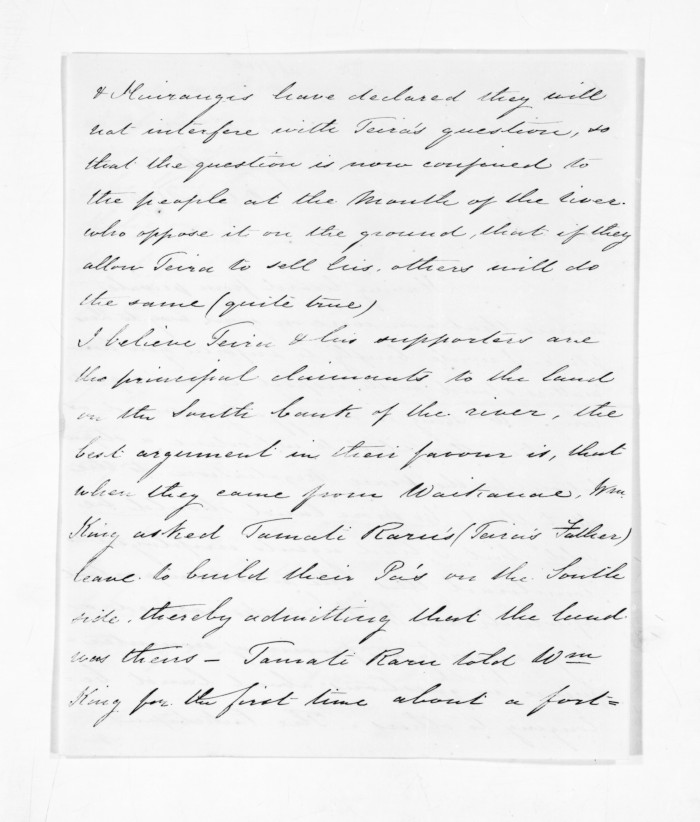 & Huirangis have declared they will
not interfere with Teira's question, so
that the question is now confined to
the people at the Mouth of the river.
who oppose it on the ground, that if they
allow Teira to sell his. others will do
the same (quite true)
I believe Teira & his supporters are
the principal claimants to the land
on the South bank of the river, the
best argument in their favour is, that
when they came from Waikanae, Wm
King asked Tamati Raru's (Teira's Father)
leave to build their Pa's on the South
side. thereby admitting that the land
was theirs – Tamati Raru told Wm
King for the first time about a fort=